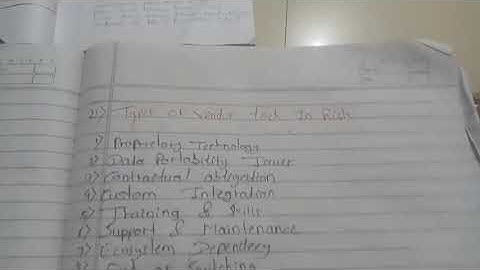 21) Types of Vendor Lock In Risk
1) Proprietary Technology
2) Data Portability Issues
3) Contractual obligation
4) Custom Integration
5) Training & Skills
6) Support & Maintenance
7) Ecosystem Dependency
8) Cost of Switching